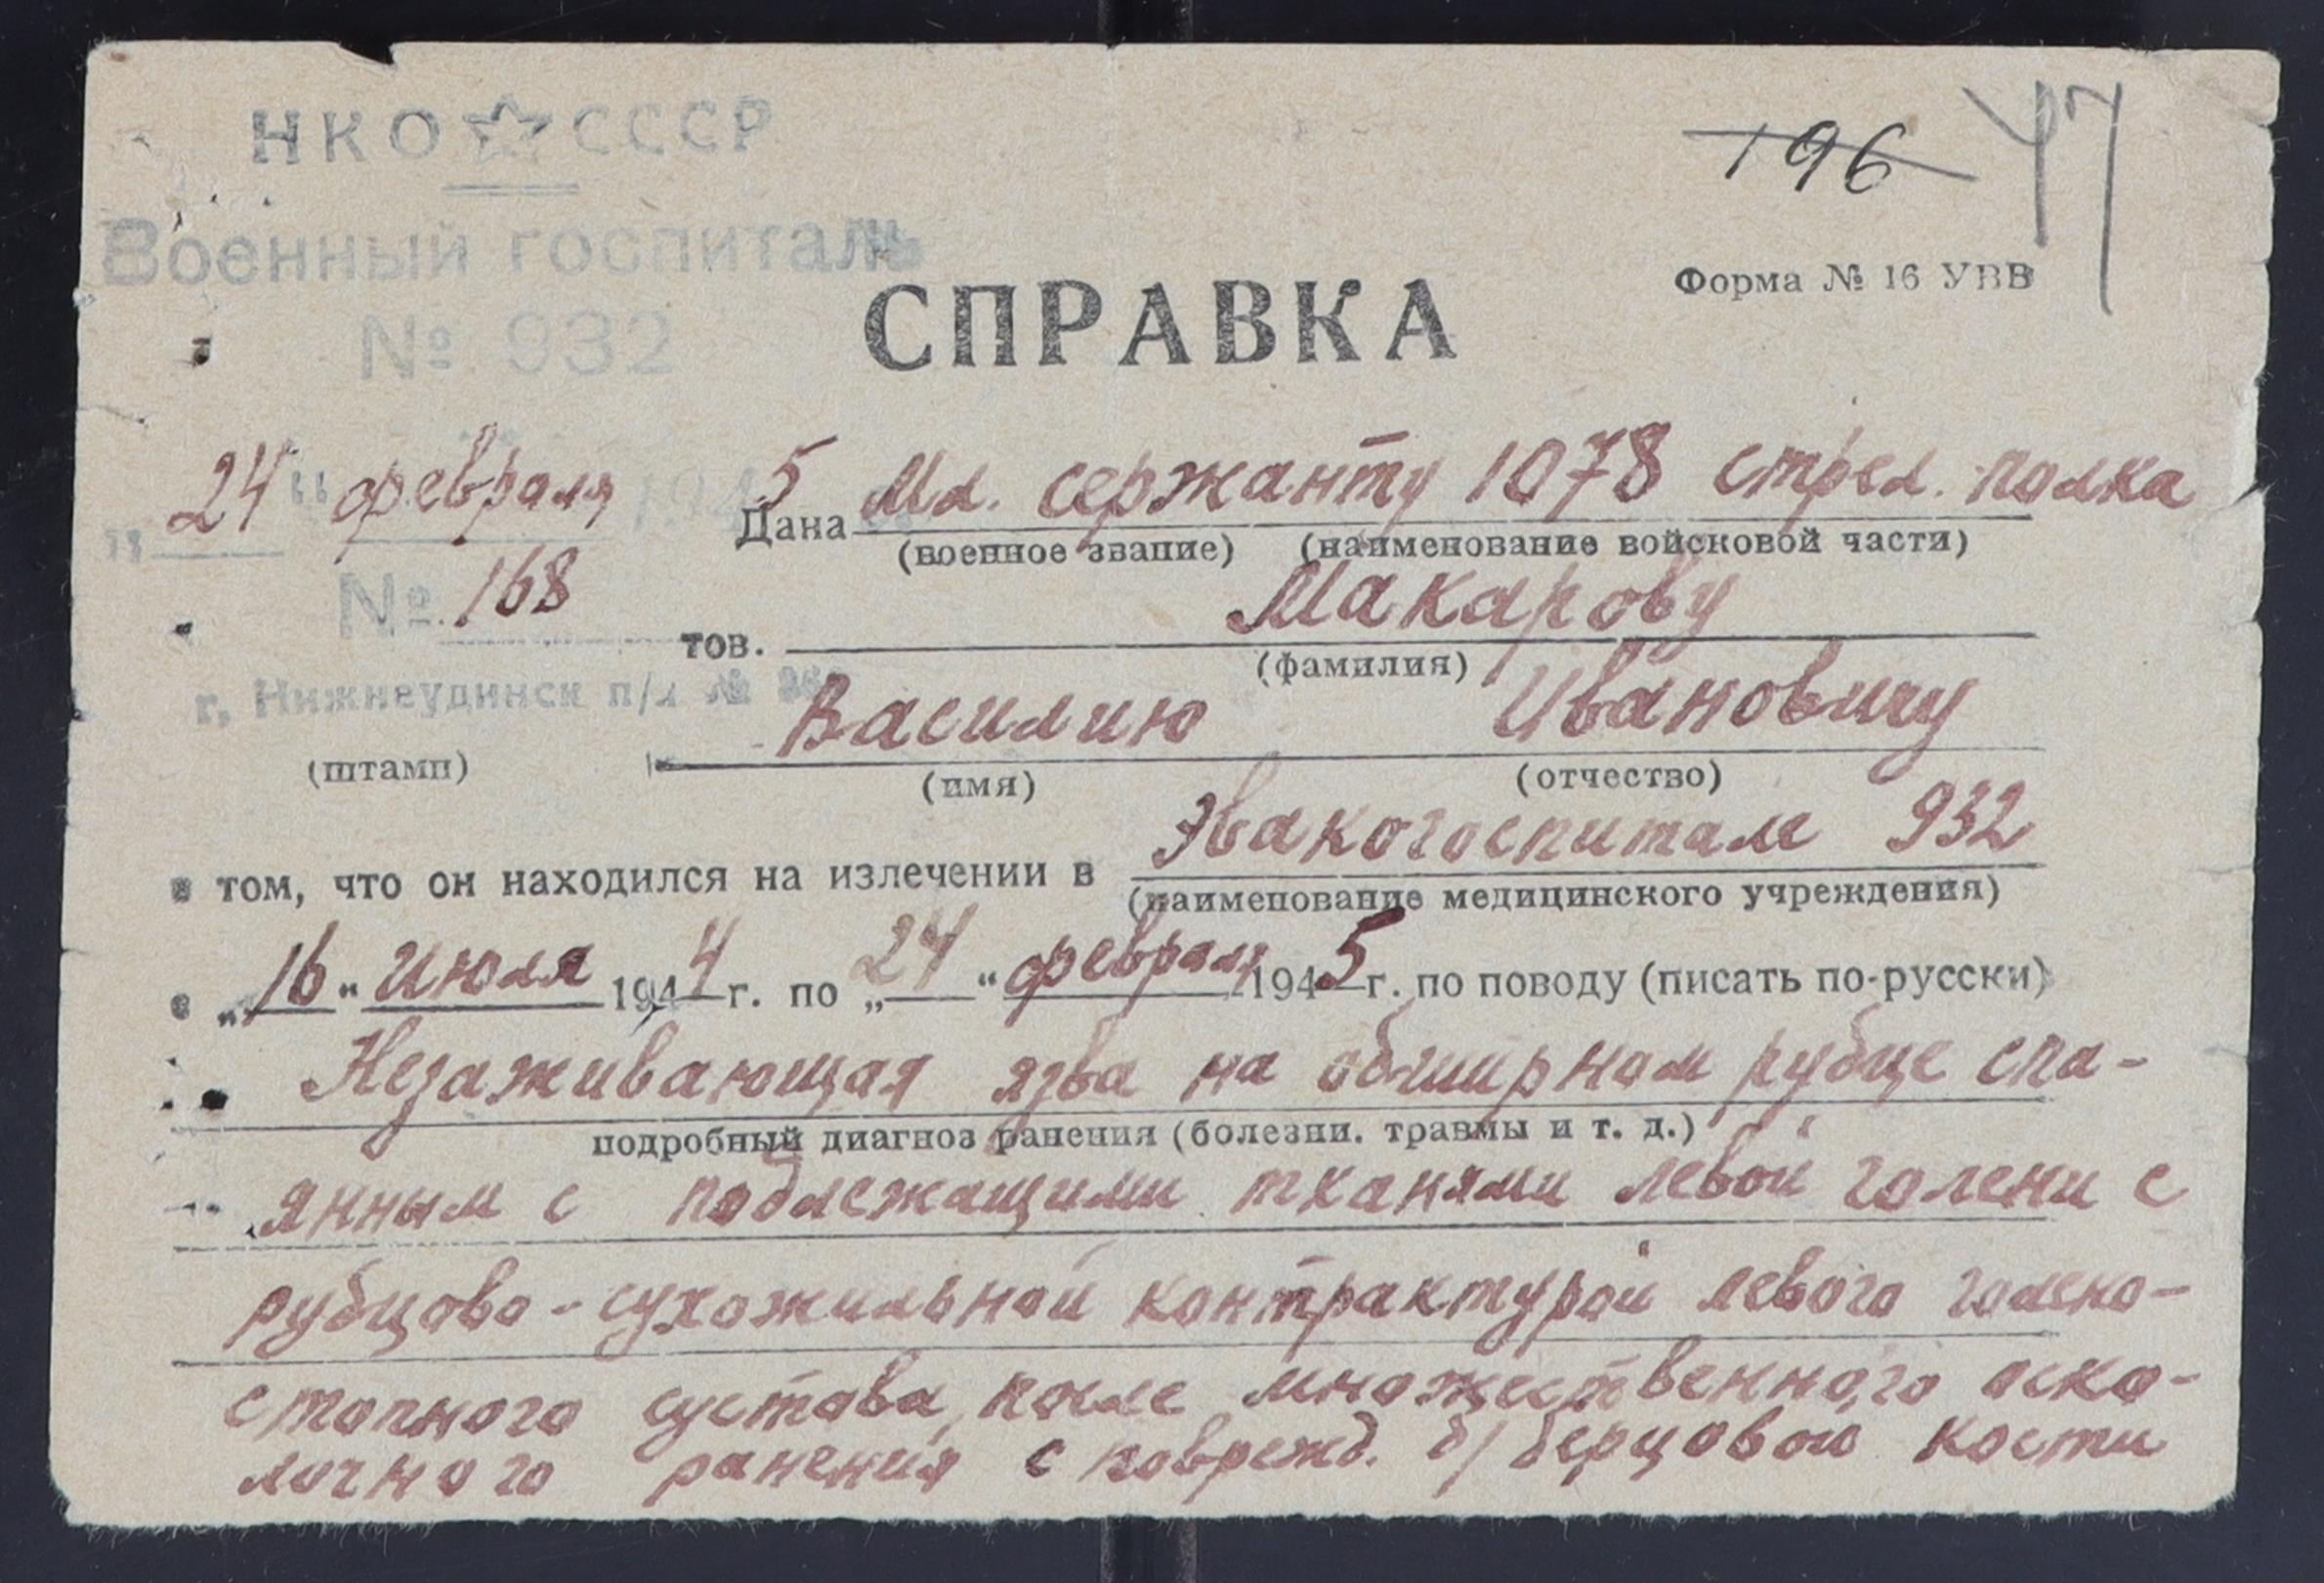 НКО СССР
196 47
Военный госпиталь
Форма № 16 УВВ
№ 932
СПРАВКА
„24“ февраля 1945
Дана Мл. сержанту 1078 стрел. полка
(военное звание) (наименование войсковой части)
№ 168
тов. Макарову
(фамилия)
г. Нижнеудинск п/я №
Василию Ивановичу
(штамп)
(имя) (отчество)
в том, что он находился на излечении в Эвакогоспитале 932
(наименование медицинского учреждения)
с „16“ июля 1944 г. по „24“ февраля 1945 г. по поводу (писать по-русски)
Незаживающая язва на обширном рубце спа-
подробный диагноз ранения (болезни. травмы и т. д.)
янным с подлежащими тканями левой голени с
рубцово-сухожильной контрактурой левого голено-
стопного сустава, после множественного оско-
лочного ранения с поврежд. б/берцовой кости